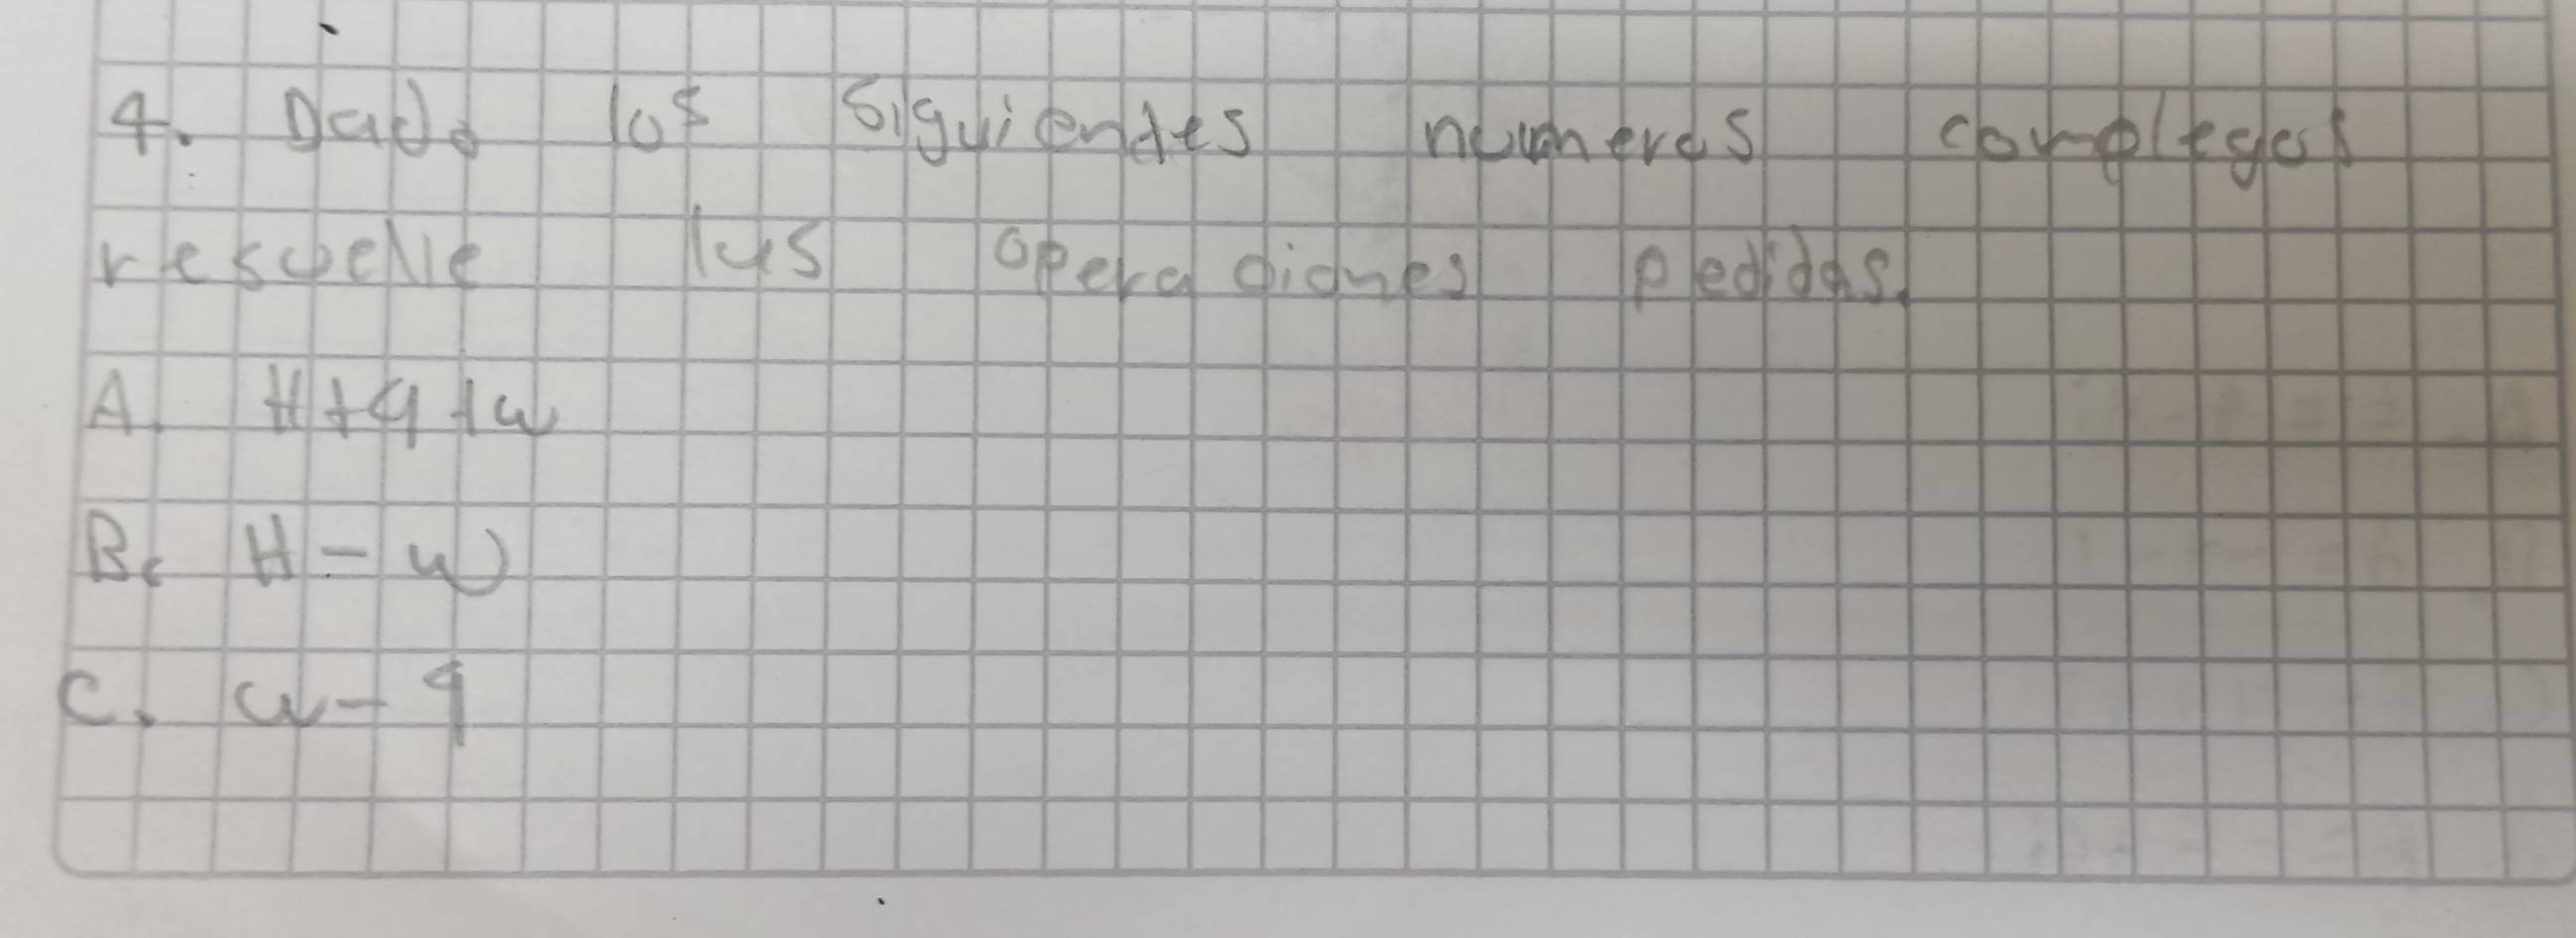 4. Dado los siguientes numeros complegos
resuelve las operaciones pedidas.
A. H+q+w
B. H-w
C. w-q